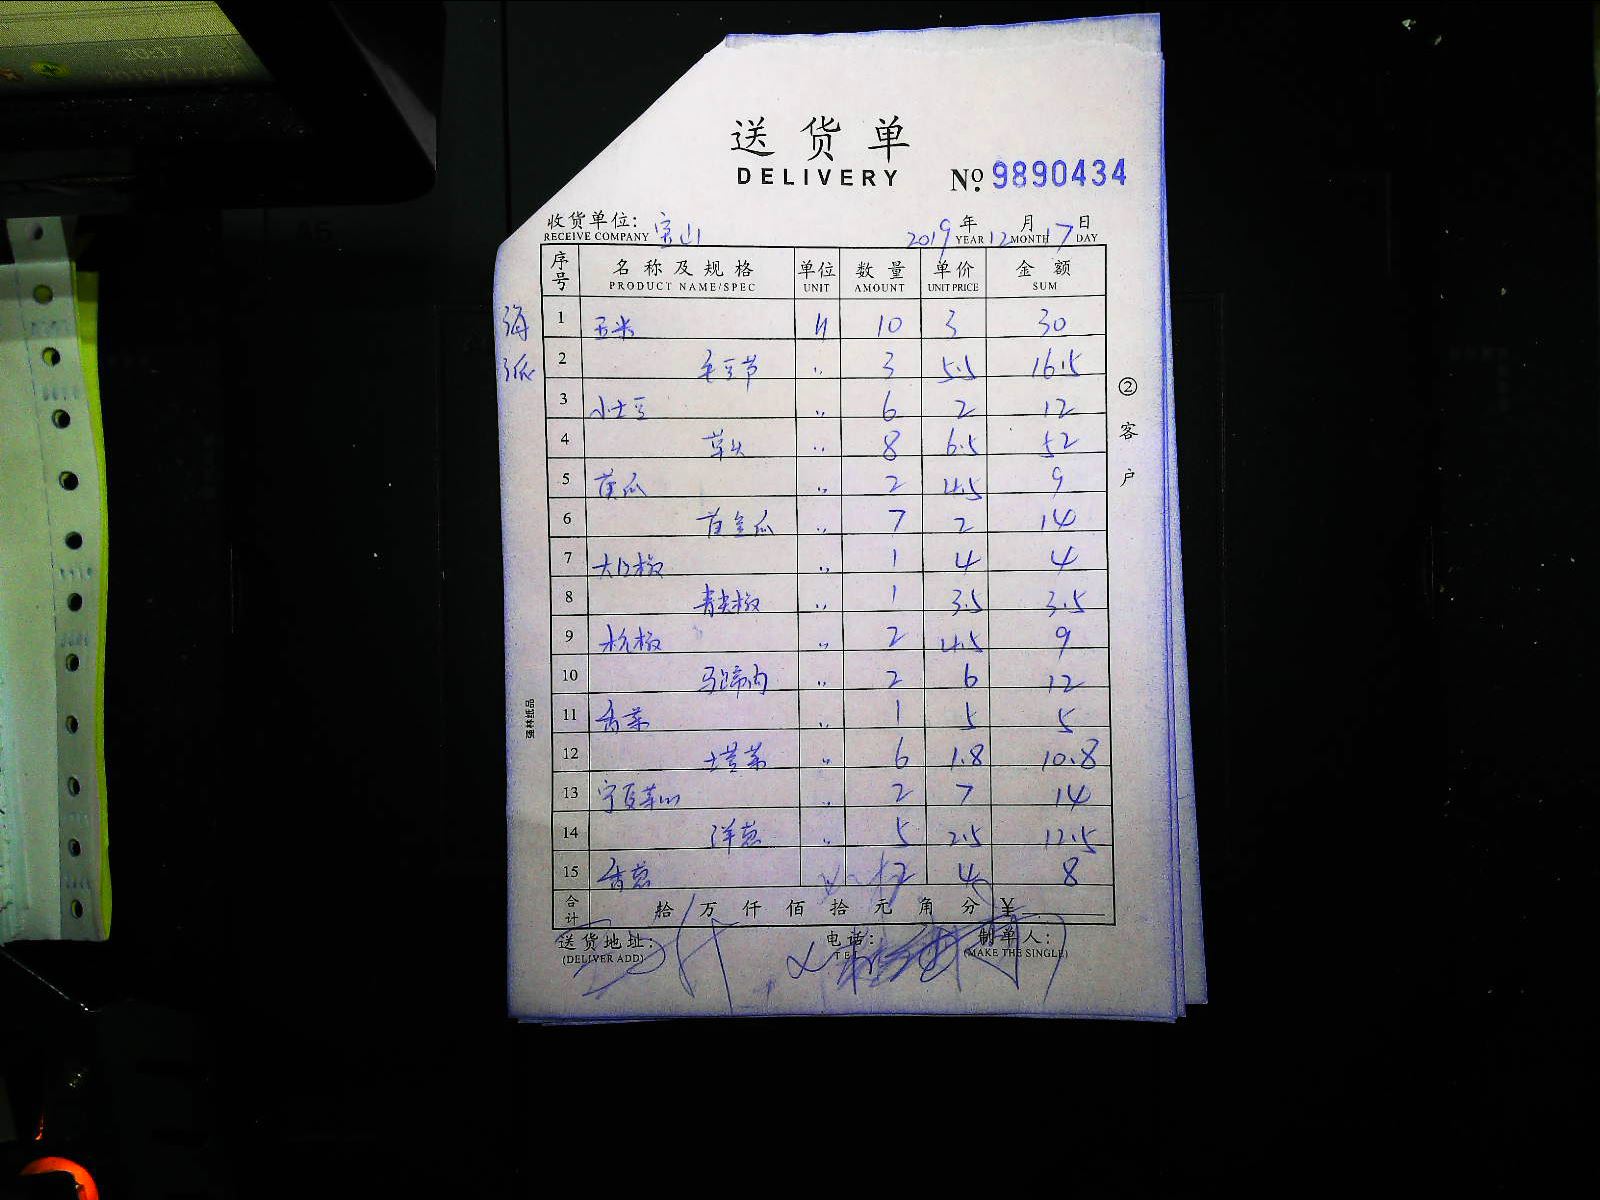 送货单
DELIVERY
№ 9890434
收货单位: 宝山 2019年12月17日
RECEIVE COMPANY YEAR MONTH DAY
序号 名称及规格 单位 数量 单价 金额
PRODUCT NAME/SPEC UNIT AMOUNT UNIT PRICE SUM
1 玉米 斤 10 3 30
2 毛豆节 〃 3 5.5 16.5
3 小土豆 〃 6 2 12
4 草头 〃 8 6.5 52
5 黄瓜 〃 2 4.5 9
6 黄金瓜 〃 7 2 14
7 大红椒 〃 1 4 4
8 青尖椒 〃 1 3.5 3.5
9 杭椒 〃 2 4.5 9
10 马蹄肉 〃 2 6 12
11 香菜 〃 1 5 5
12 塔菜 〃 6 1.8 10.8
13 宁夏菜心 〃 2 7 14
14 洋葱 〃 5 2.5 12.5
15 香葱 2 4 8
合计 拾 万 仟 佰 拾 元 角 分 ¥
送货地址: 电话: 制单人:
(DELIVER ADD) TEL (MAKE THE SINGLE)
②客户
强林纸品
A5